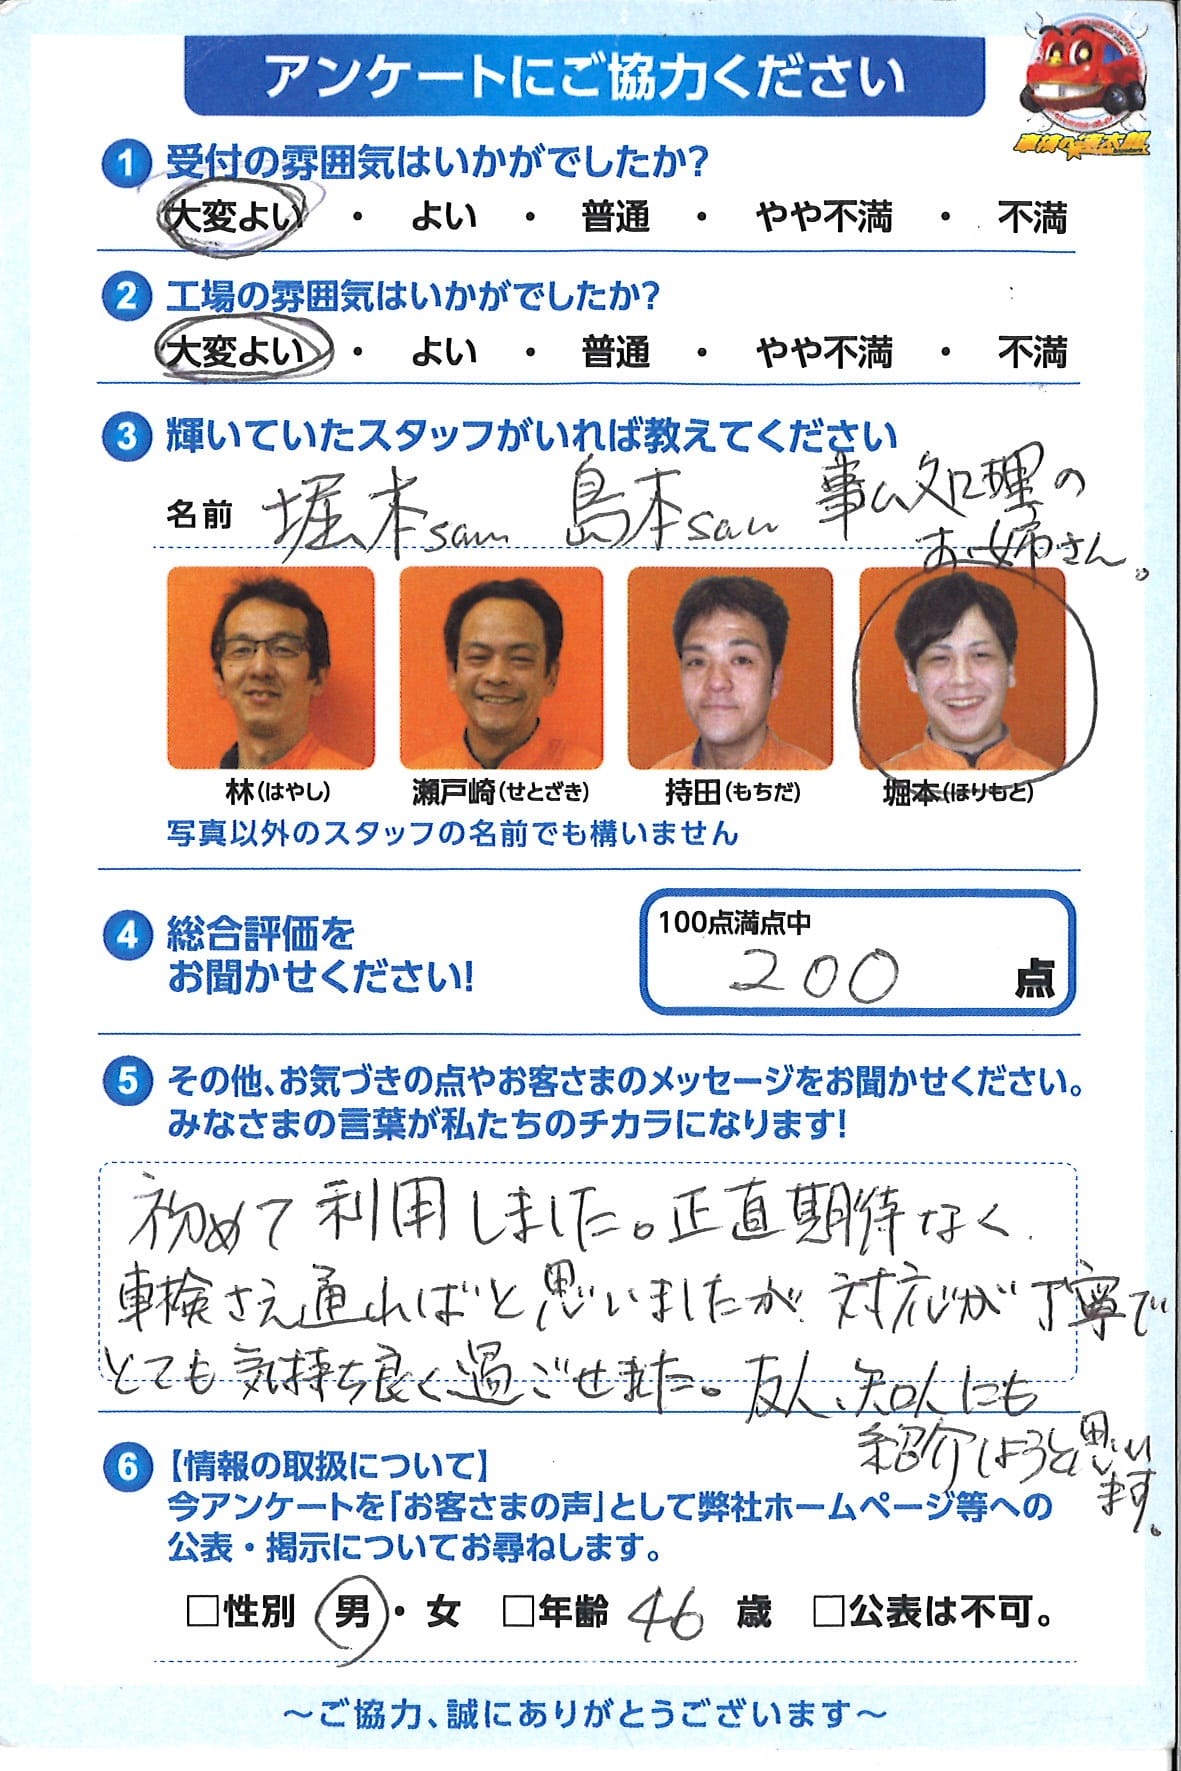 アンケートにご協力ください
車検の速太郎
1 受付の雰囲気はいかがでしたか?
大変よい ・ よい ・ 普通 ・ やや不満 ・ 不満
2 工場の雰囲気はいかがでしたか?
大変よい ・ よい ・ 普通 ・ やや不満 ・ 不満
3 輝いていたスタッフがいれば教えてください
名前 堀本san 島本san 事ム処理の
お姉さん。
林(はやし) 瀬戸崎(せとざき) 持田(もちだ) 堀本(ほりもと)
写真以外のスタッフの名前でも構いません
4 総合評価を
お聞かせください!
100点満点中
200 点
5 その他、お気づきの点やお客さまのメッセージをお聞かせください。
みなさまの言葉が私たちのチカラになります!
初めて利用しました。正直期待なく
車検さえ通ればと思いましたが、対応が丁寧で
とても気持ち良く過ごせました。友人、知人にも
紹介しようと思い
ます。
6 【情報の取扱について】
今アンケートを「お客さまの声」として弊社ホームページ等への
公表・掲示についてお尋ねします。
□性別 男・女 □年齢 46 歳 □公表は不可。
~ご協力、誠にありがとうございます~